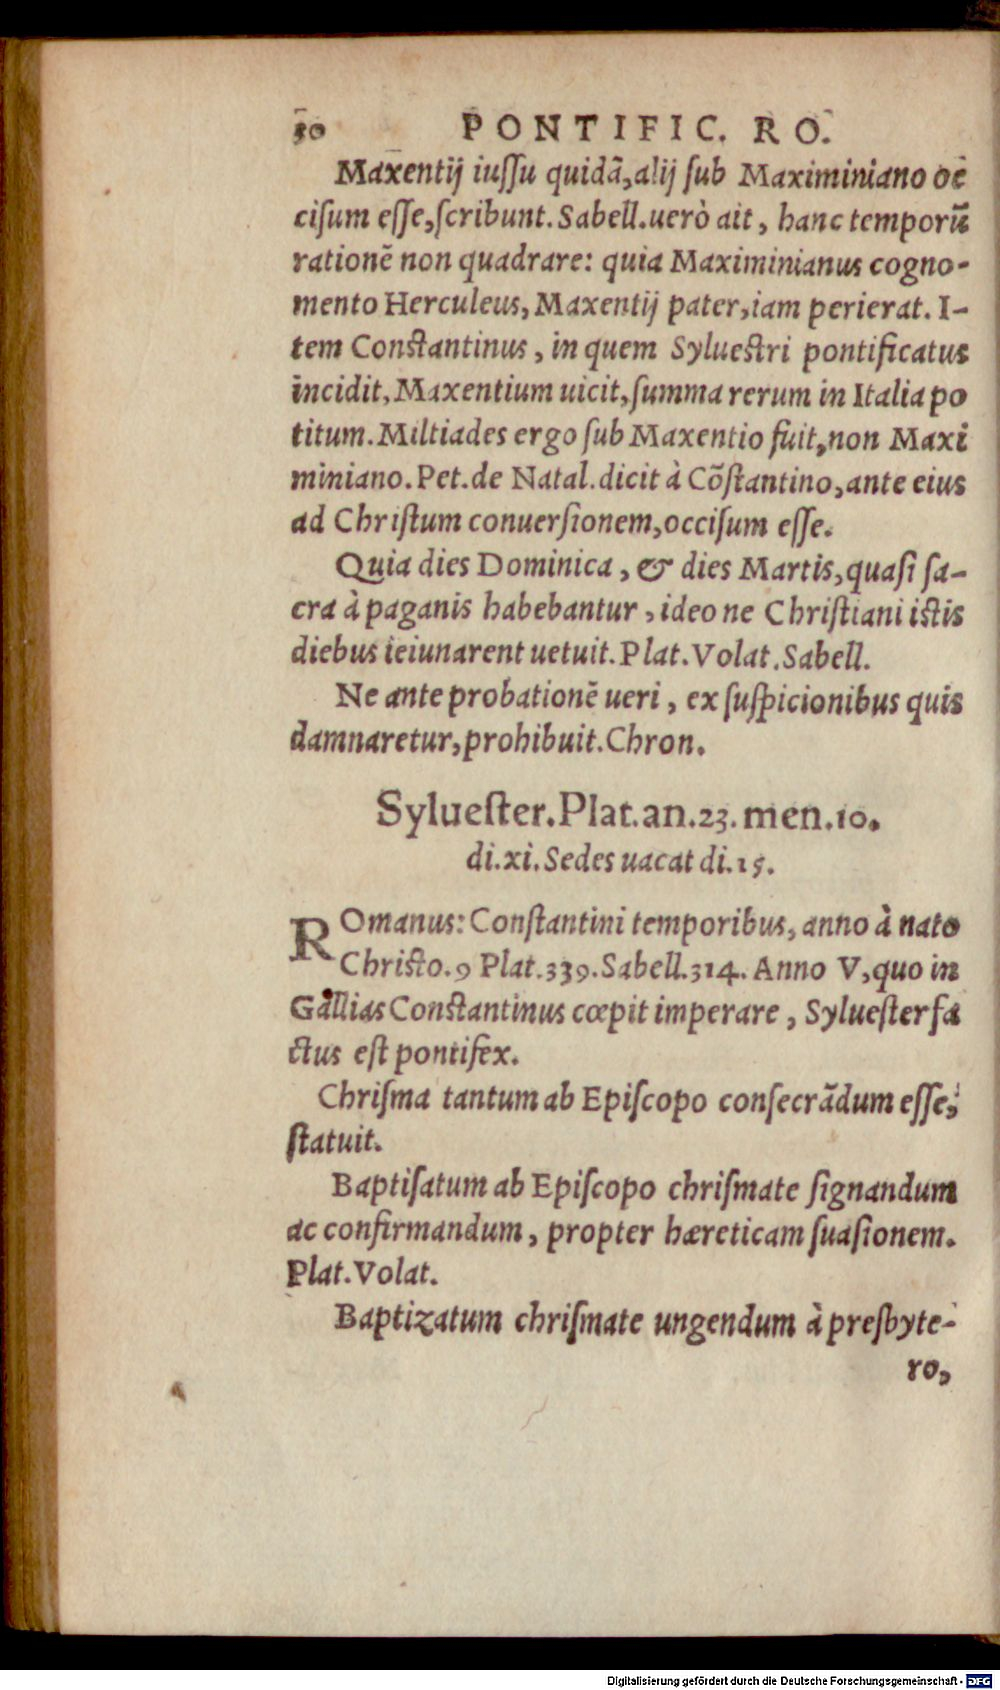 50 PONTIFIC. RO.
Maxentij iuſſu quidā, alij ſub Maximiniano oc
ciſum eſſe, ſcribunt. Sabell. uerò ait, hanc temporū
rationē non quadrare: quia Maximinianus cogno-
mento Herculeus, Maxentij pater, iam perierat. I-
tem Conſtantinus, in quem Sylueſtri pontificatus
incidit, Maxentium uicit, ſumma rerum in Italia po
titum. Miltiades ergo ſub Maxentio fuit, non Maxi
miniano. Pet. de Natal. dicit à Cōſtantino, ante eius
ad Chriſtum conuerſionem, occiſum eſſe.
Quia dies Dominica, & dies Martis, quaſi ſa-
cra à paganis habebantur, ideo ne Chriſtiani iſtis
diebus ieiunarent uetuit. Plat. Volat. Sabell.
Ne ante probationē ueri, ex ſuſpicionibus quis
damnaretur, prohibuit. Chron.
Sylueſter. Plat. an. 23. men. 10.
di. xi. Sedes uacat di. 15.
ROmanus: Conſtantini temporibus, anno à nato
Chriſto. 9 Plat. 339. Sabell. 314. Anno V, quo in
Gallias Conſtantinus cœpit imperare, Sylueſter fa
ctus eſt pontifex.
Chriſma tantum ab Epiſcopo conſecrādum eſſe,
ſtatuit.
Baptiſatum ab Epiſcopo chriſmate ſignandum
ac confirmandum, propter hæreticam ſuaſionem.
Plat. Volat.
Baptizatum chriſmate ungendum à preſbyte-
ro,
Digitalisierung gefördert durch die Deutsche Forschungsgemeinschaft - DFG